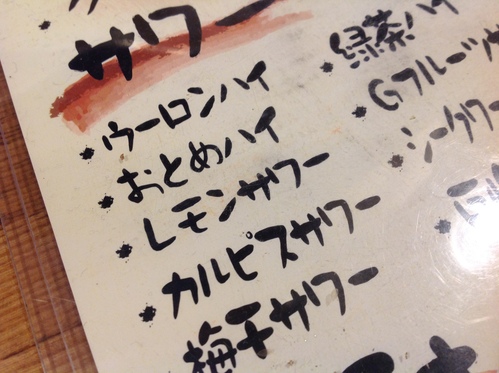 サワー
ウーロンハイ
おとめハイ
レモンサワー
カルピスサワー
梅干サワー
緑茶ハイ
Gフルーツサ
シークワー